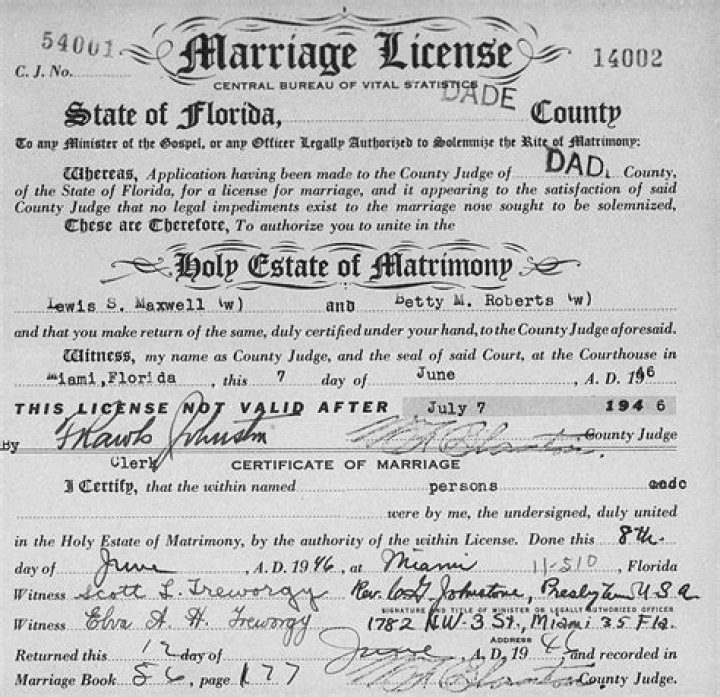 54001
Marriage License
14002
C. J. No.
CENTRAL BUREAU OF VITAL STATISTICS
State of Florida, DADE County
To any Minister of the Gospel, or any Officer Legally Authorized to Solemnize the Rite of Matrimony:
Whereas, Application having been made to the County Judge of DAD. County,
of the State of Florida, for a license for marriage, and it appearing to the satisfaction of said
County Judge that no legal impediments exist to the marriage now sought to be solemnized,
These are Therefore, To authorize you to unite in the
Holy Estate of Matrimony
Lewis S. Maxwell (w) and Betty M. Roberts (w)
and that you make return of the same, duly certified under your hand, to the County Judge aforesaid.
Witness, my name as County Judge, and the seal of said Court, at the Courthouse in
Miami, Florida, this 7 day of June, A. D. 1946
THIS LICENSE NOT VALID AFTER July 7 1946
By Johnston County Judge
Clerk
CERTIFICATE OF MARRIAGE
I Certify, that the within named persons
were by me, the undersigned, duly united
in the Holy Estate of Matrimony, by the authority of the within License. Done this 8th
day of June, A. D. 1946, at Miami 11-510, Florida
Witness Scott L. Treworgy Rev. Johnstone, Presbyterian U.S.A.
SIGNATURE AND TITLE OF MINISTER OR LEGALLY AUTHORIZED OFFICER
Witness Elva A. H. Treworgy 1782 N.W. 3 St., Miami 35 Fla.
ADDRESS
Returned this 12 day of June, A. D. 1946 and recorded in
Marriage Book 86, page 177 County Judge.